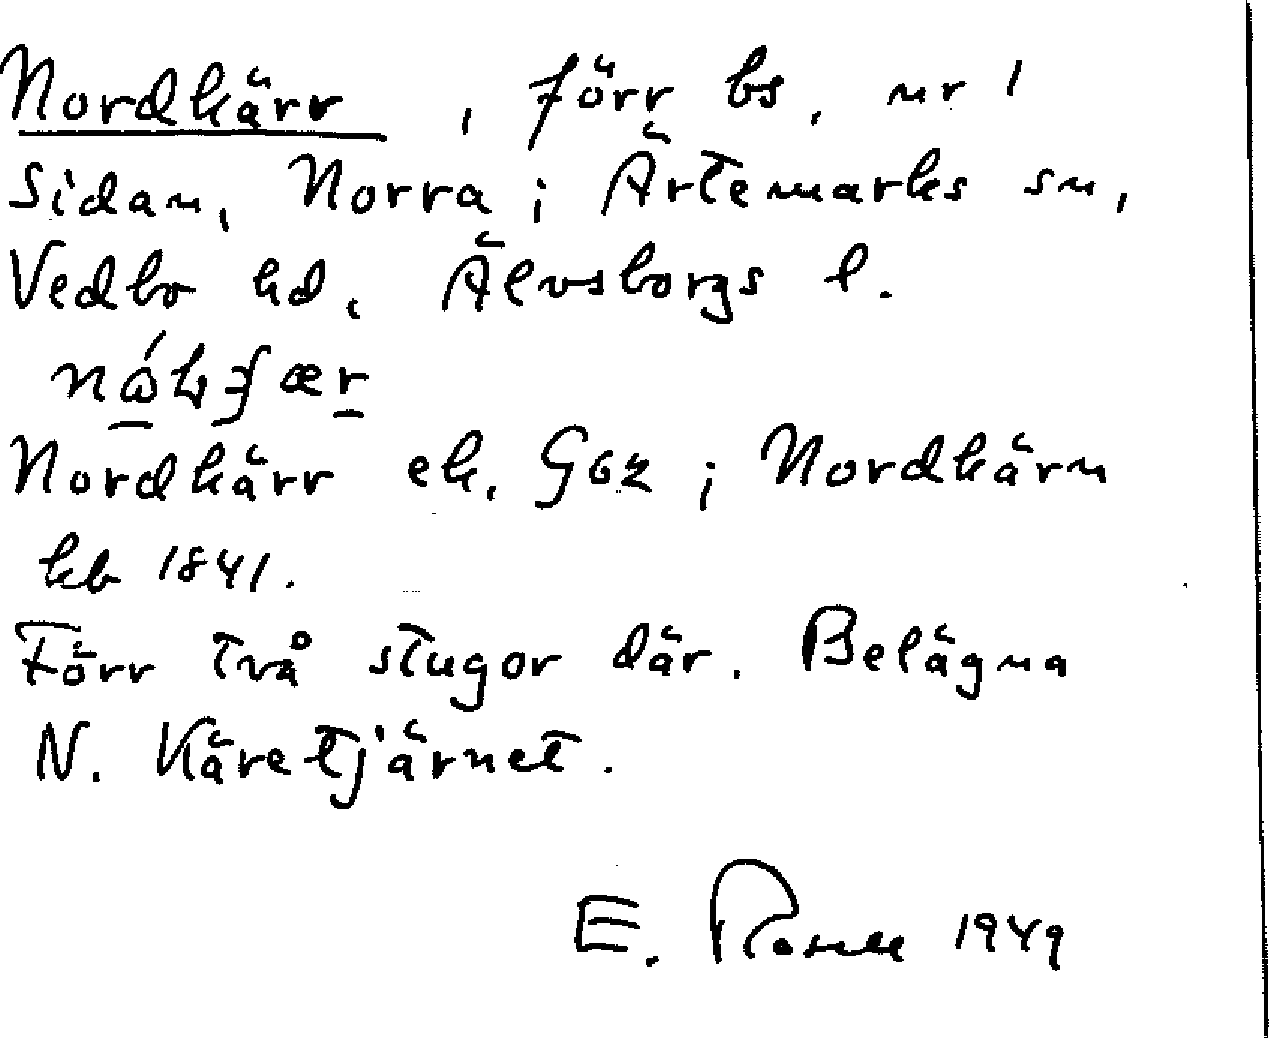 Nordkärr, förr bs, nr 1
Sidan, Norra i Ärtemarks sn,
Vedbo hd, Älvsborgs l.
Nordkärr ek. G62 ; Nordkärn
kb 1841.
Förr två stugor där. Belägna
N. Käretjärnet.
E. 1949